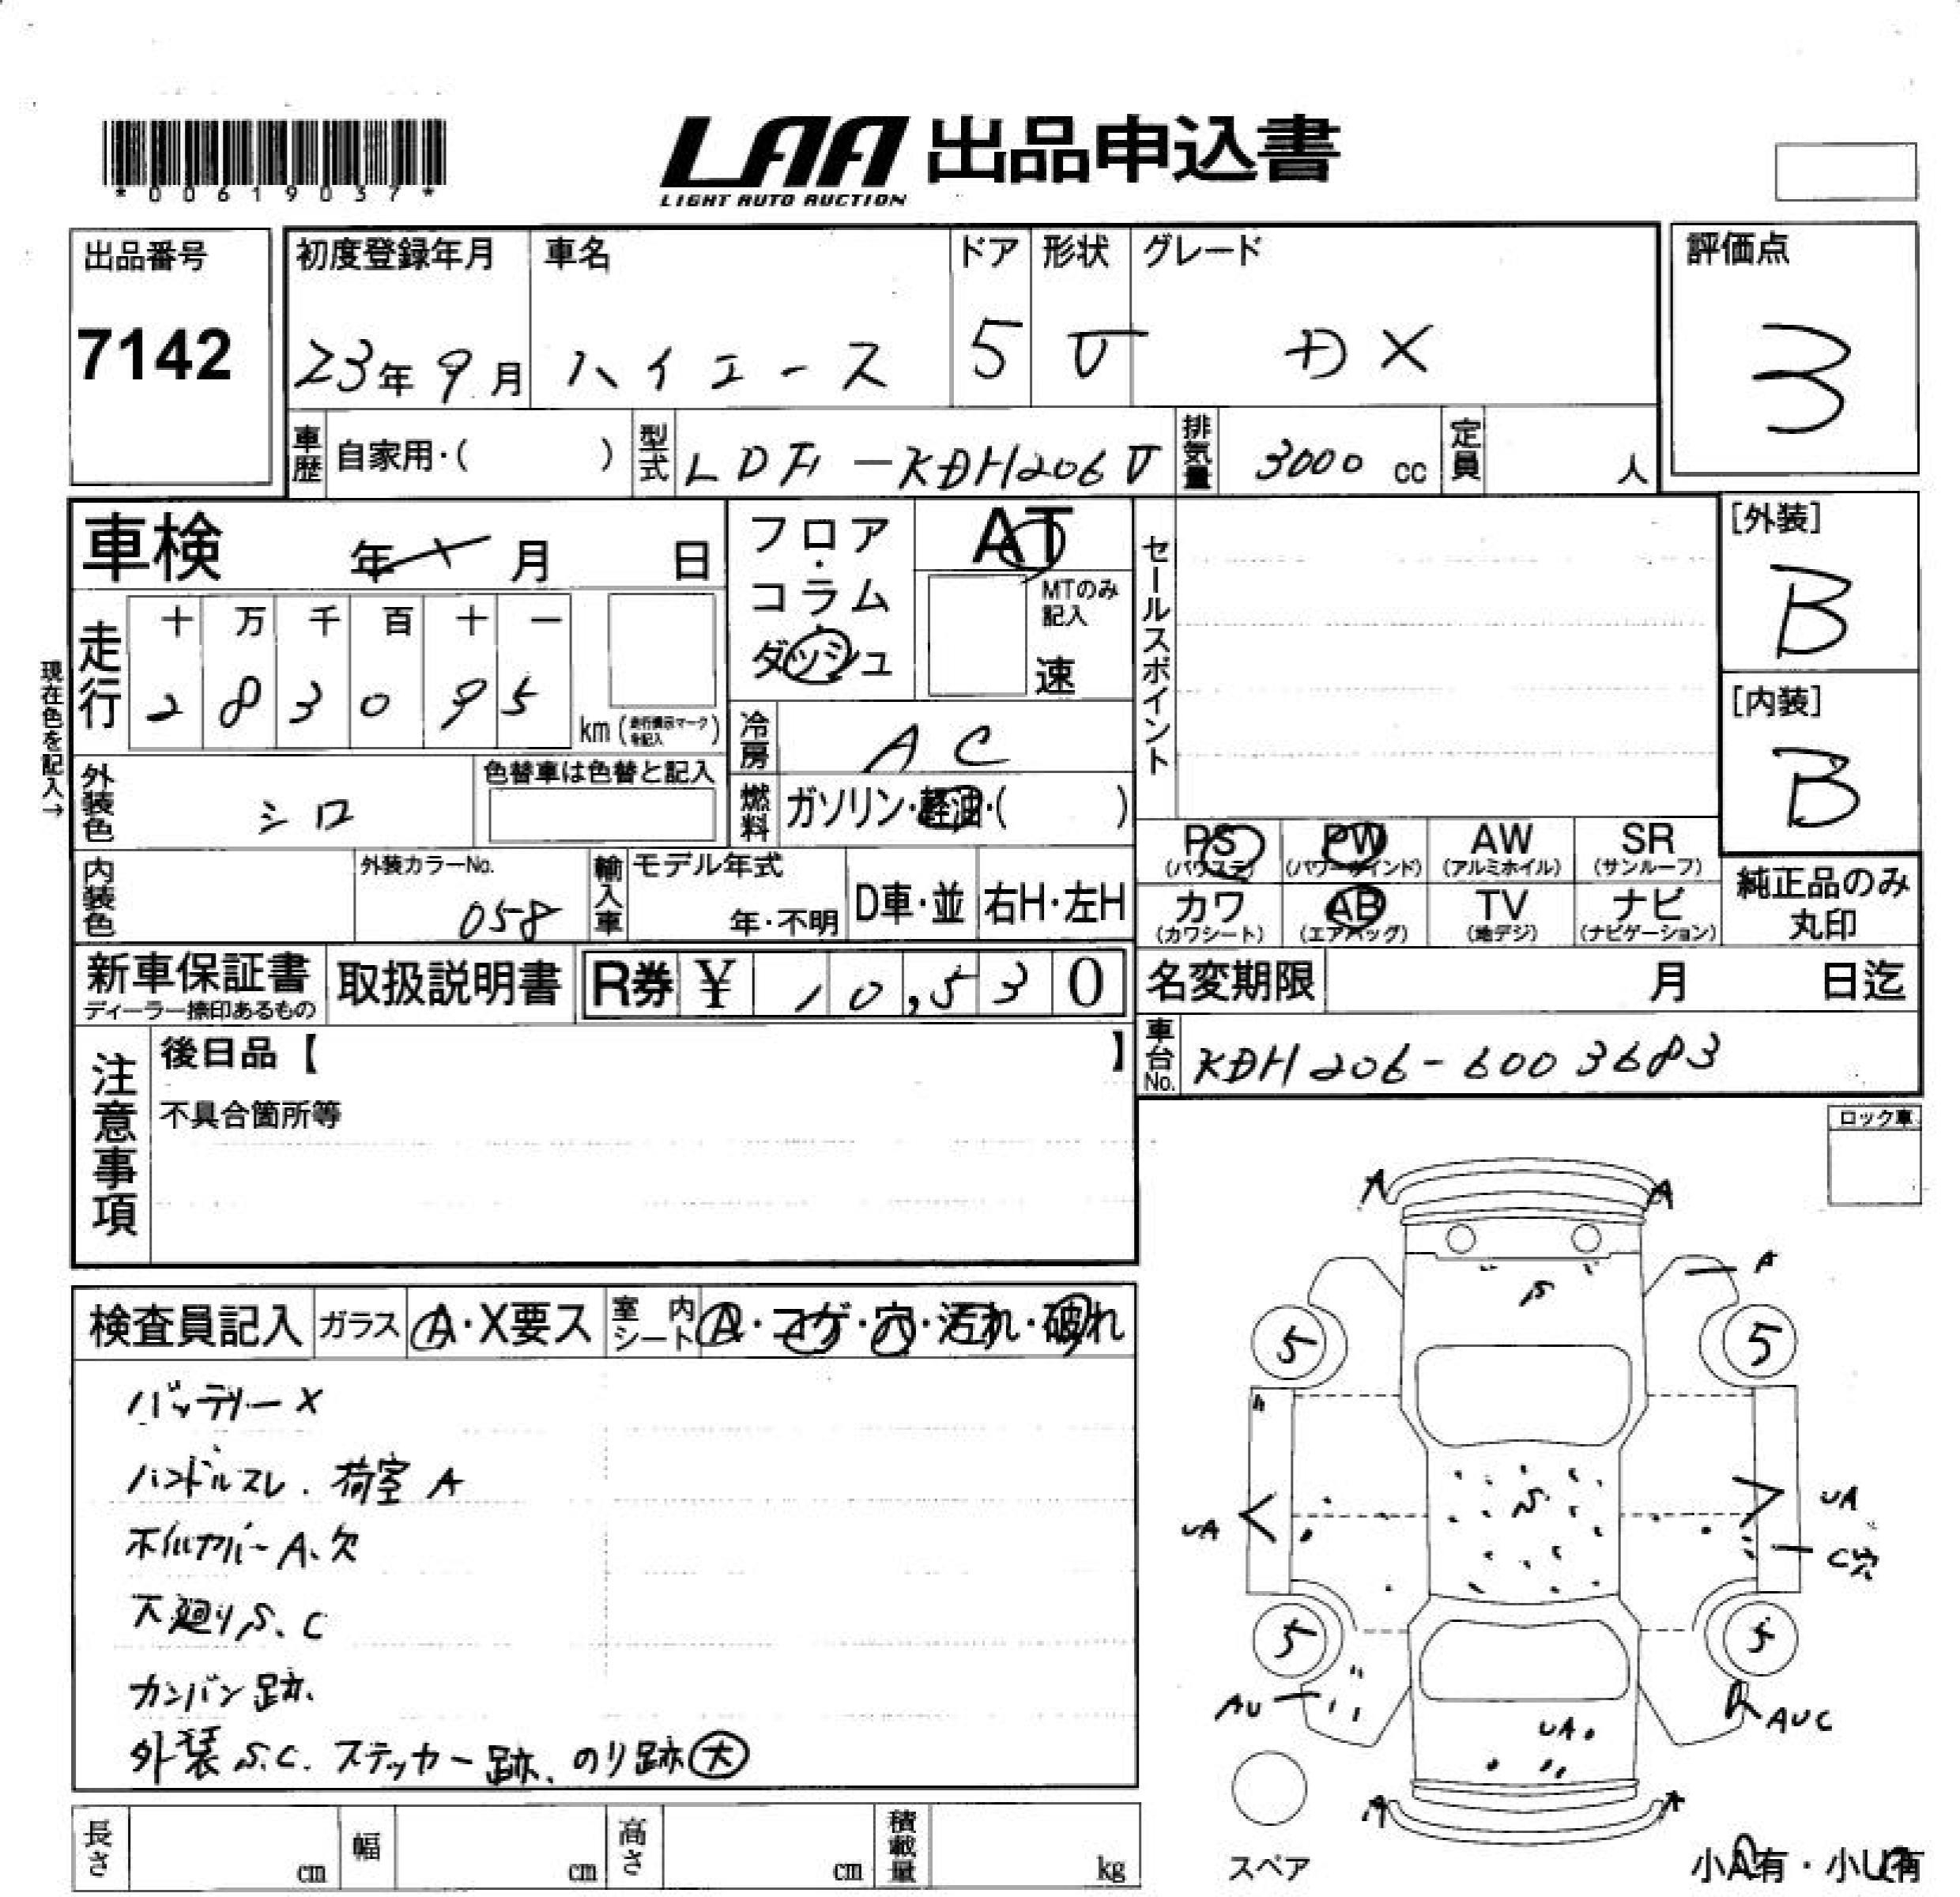 *00619037*
LAA 出品申込書
LIGHT AUTO AUCTION
出品番号
7142
初度登録年月 車名 ドア 形状 グレード
23年9月 ハイエース 5 V DX
評価点
3
車歴 自家用・( ) 型式 LDF-KDH206V 排気量 3000 cc 定員 人
車検 年 月 日
フロア・コラム・ダッシュ
AT
MTのみ記入
速
セールスポイント
[外装]
B
[内装]
B
現在色を記入→
走行 十 万 千 百 十 一
2 8 3 0 9 5 km (走行表示マークを記入)
冷房 AC
外装色 シロ 色替車は色替と記入
燃料 ガソリン・軽油・( )
PS (パワステ) PW (パワーウインド) AW (アルミホイル) SR (サンルーフ)
カワ (カワシート) AB (エアバッグ) TV (地デジ) ナビ (ナビゲーション)
純正品のみ丸印
内装色 外装カラーNo. 058
輸入車 モデル年式 年・不明 D車・並 右H・左H
新車保証書 ディーラー捺印あるもの 取扱説明書 R券 ¥ 10,530
名変期限 月 日迄
車台No. KDH206-6003683
注意事項
後日品【 】
不具合箇所等
ロック車
検査員記入 ガラス A・X要ス 室内シート A・コゲ・穴・汚れ・破れ
バッテリーX
ハンドルスレ. 荷室A
ホイルカバーA、欠
下廻りS、C
カンバン跡.
外装S.C. ステッカー跡、のり跡大
A A
A
S
5 5
S
UA UA
C穴
5 5
AU AUC
UA
A A
スペア
小A有・小U有
長さ cm 幅 cm 高さ cm 積載量 kg